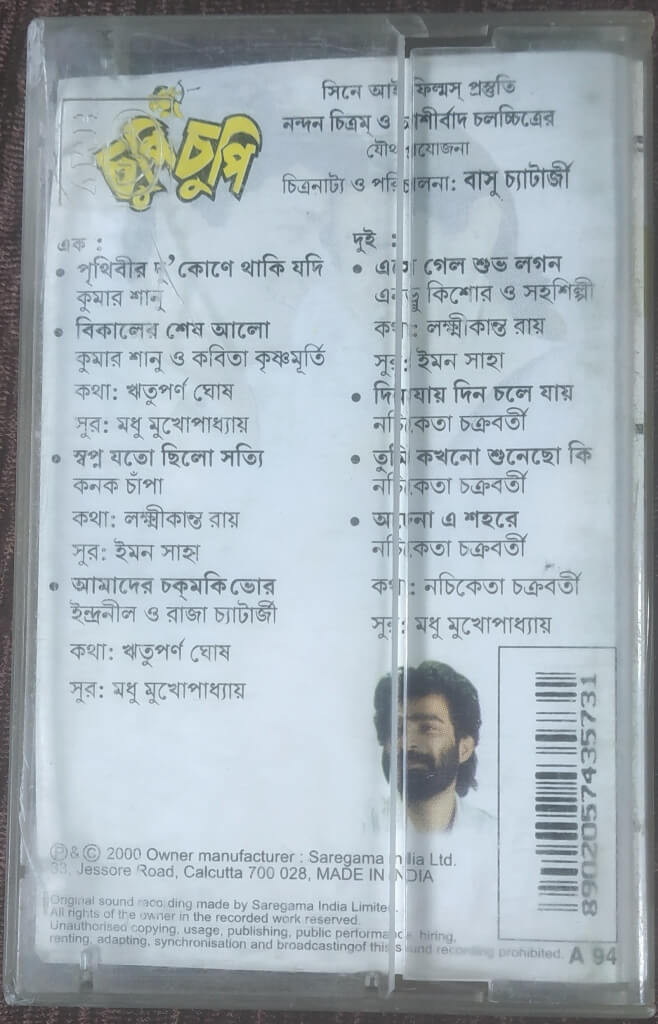 চুপি চুপি
সিনে আই ফিল্মস্ প্রস্তুতি
নন্দন চিত্রম্ ও আশীর্বাদ চলচ্চিত্রের
যৌথ প্রযোজনা
চিত্রনাট্য ও পরিচালনা: বাসু চ্যাটার্জী
এক :
• পৃথিবীর দু’কোণে থাকি যদি
কুমার শানু
• বিকালের শেষ আলো
কুমার শানু ও কবিতা কৃষ্ণমূর্তি
কথা: ঋতুপর্ণ ঘোষ
সুর: মধু মুখোপাধ্যায়
• স্বপ্ন যতো ছিলো সত্যি
কনক চাঁপা
কথা: লক্ষ্মীকান্ত রায়
সুর: ইমন সাহা
• আমাদের চক্‌মকি ভোর
ইন্দ্রনীল ও রাজা চ্যাটার্জী
কথা: ঋতুপর্ণ ঘোষ
সুর: মধু মুখোপাধ্যায়
দুই :
• এসে গেল শুভ লগন
এনড্রু কিশোর ও সহশিল্পী
কথা: লক্ষ্মীকান্ত রায়
সুর: ইমন সাহা
• দিন যায় দিন চলে যায়
নচিকেতা চক্রবর্তী
• তুমি কখনো শুনেছো কি
নচিকেতা চক্রবর্তী
• অচেনা এ শহরে
নচিকেতা চক্রবর্তী
কথা: নচিকেতা চক্রবর্তী
সুর: মধু মুখোপাধ্যায়
8902057435731
Ⓟ & © 2000 Owner manufacturer : Saregama India Ltd.
33, Jessore Road, Calcutta 700 028, MADE IN INDIA
Original sound recording made by Saregama India Limited.
All rights of the owner in the recorded work reserved.
Unauthorised copying, usage, publishing, public performance, hiring,
renting, adapting, synchronisation and broadcastingof this sound recording prohibited. A 94